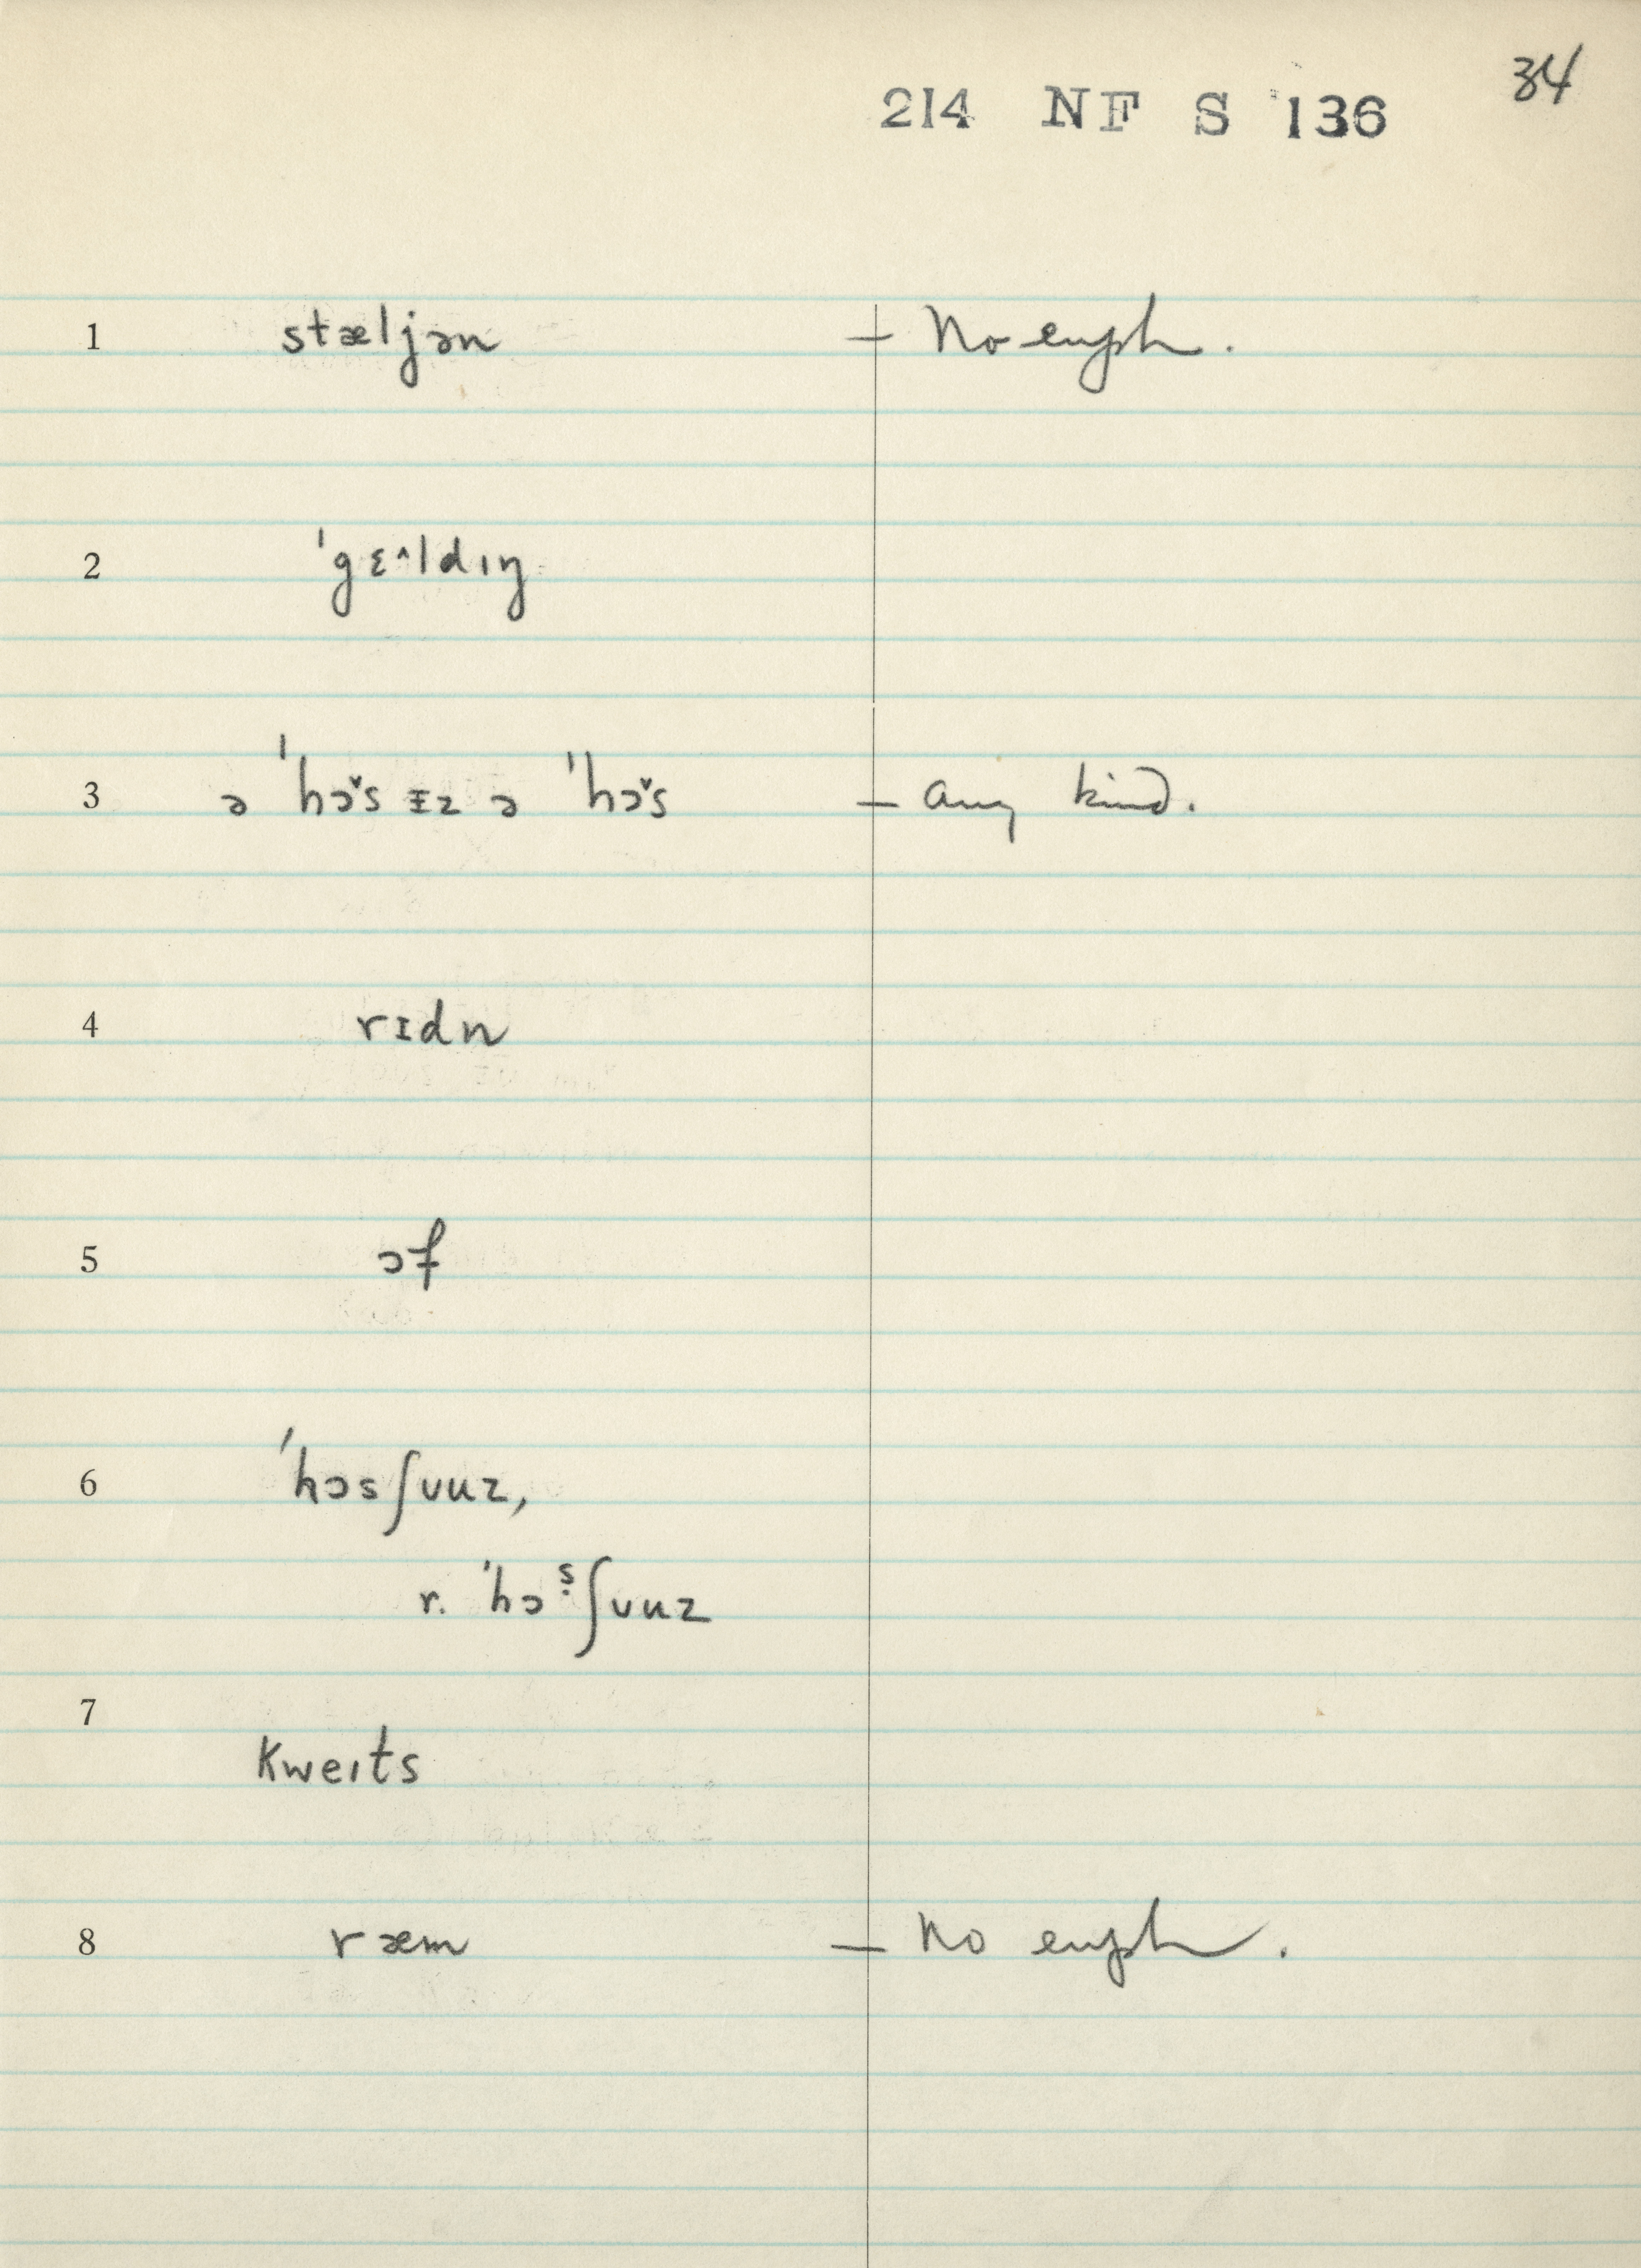 34
214 NF S 136
1 stæljən – No euph.
2 ˈgɛ˄ldɪŋ
3 ə ˈhɔ˅s ɪz ə ˈhɔ˅s – any kind.
4 rɪdn
5 ɔf
6 ˈhɔsʃuuz,
r. ˈhɔṣʃuuz
7 kweɪts
8 ræm – No euph.